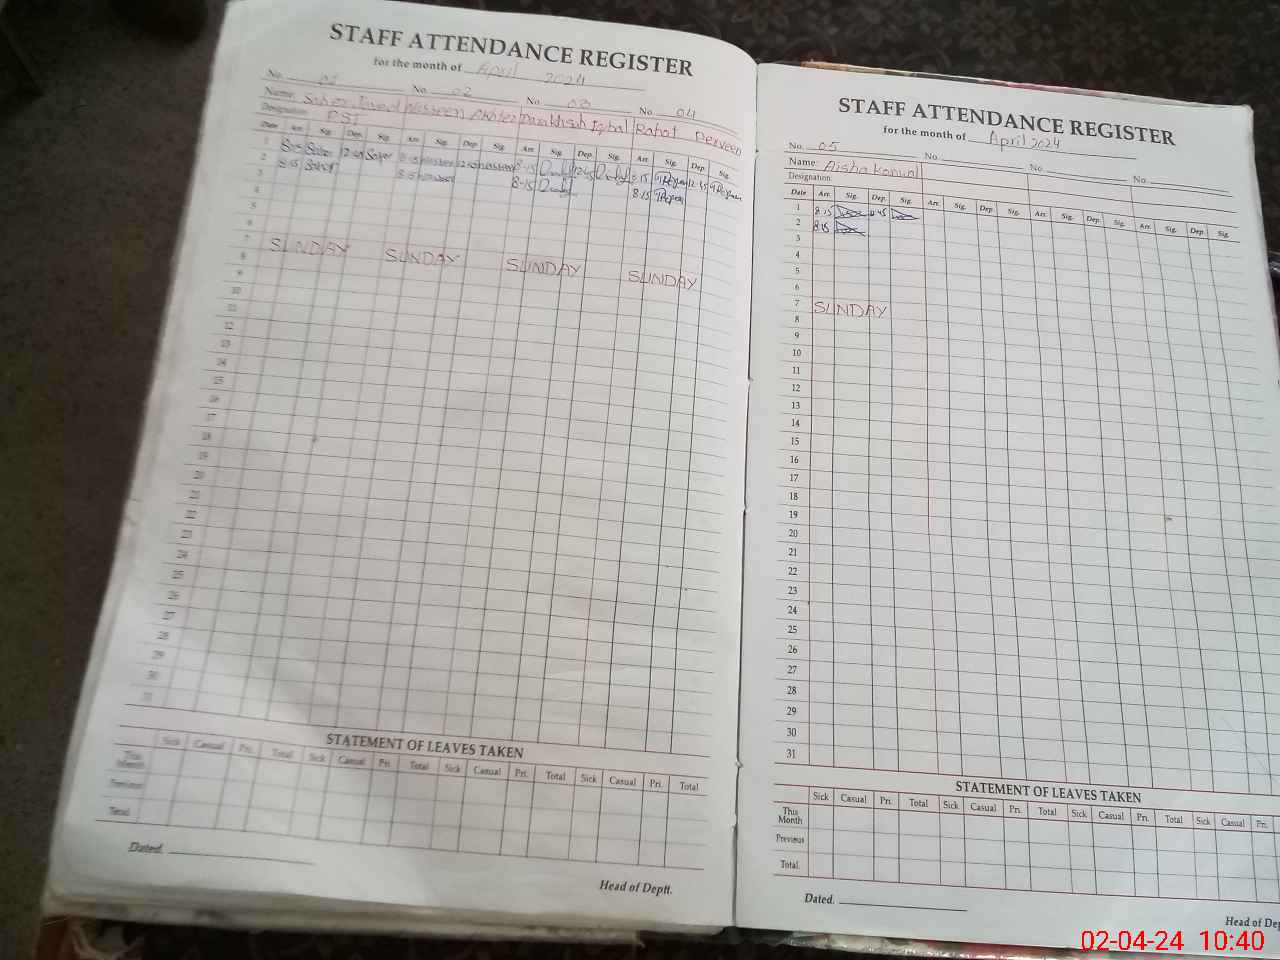 STAFF ATTENDANCE REGISTER
for the month of April 2024
No. 01 No. 02 No. 03 No. 04
Name: Saher Javed Nasreen Akhter Darakhshah Iqbal Rahat Perveen
Designation PST
Date Arr. Sig. Dep. Sig. Arr. Sig. Dep. Sig. Arr. Sig. Dep. Sig. Arr. Sig. Dep. Sig.
1 8:15 Saher 12:45 Saher 8:15 12:45 8-15 12:45 8:15 12:45
2 8:15 Saher 8:15 8-15 8:15
3
4
5
6
7 SUNDAY SUNDAY SUNDAY SUNDAY
8
9
10
11
12
13
14
15
16
17
18
19
20
21
22
23
24
25
26
27
28
29
30
31
STATEMENT OF LEAVES TAKEN
Sick Casual Pri. Total Sick Casual Pri. Total Sick Casual Pri. Total Sick Casual Pri. Total
This Month
Previous
Total
Dated.
Head of Deptt.
STAFF ATTENDANCE REGISTER
for the month of April 2024
No. 05 No. No. No.
Name: Aisha Kanwal
Designation
Date Arr. Sig. Dep. Sig. Arr. Sig. Dep. Sig. Arr. Sig. Dep. Sig. Arr. Sig. Dep. Sig.
1 8:15 12:45
2 8:15
3
4
5
6
7 SUNDAY
8
9
10
11
12
13
14
15
16
17
18
19
20
21
22
23
24
25
26
27
28
29
30
31
STATEMENT OF LEAVES TAKEN
Sick Casual Pri. Total Sick Casual Pri. Total Sick Casual Pri. Total Sick Casual Pri.
This Month
Previous
Total.
Dated.
Head of Dep
02-04-24 10:40